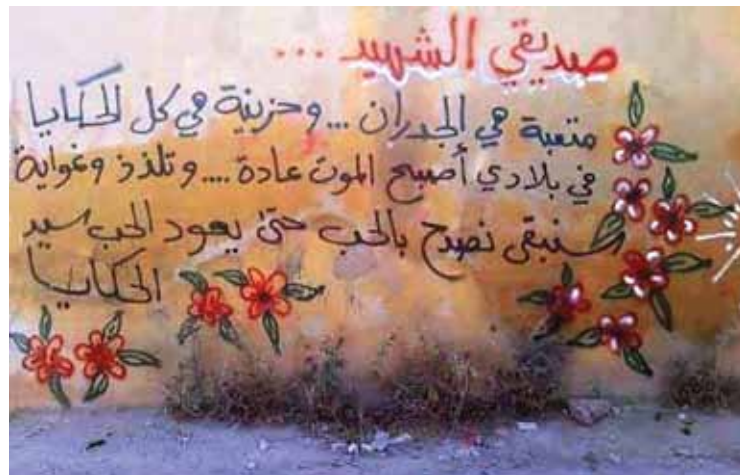 صديقي الشهيد ...
متعبة هي الجدران ... وحزينة هي كل الحكايا
في بلادي أصبح الموت عادة .... وتلذذ وغواية
سنبقى نصدح بالحب حتى يعود الحب سيد
الحكايا